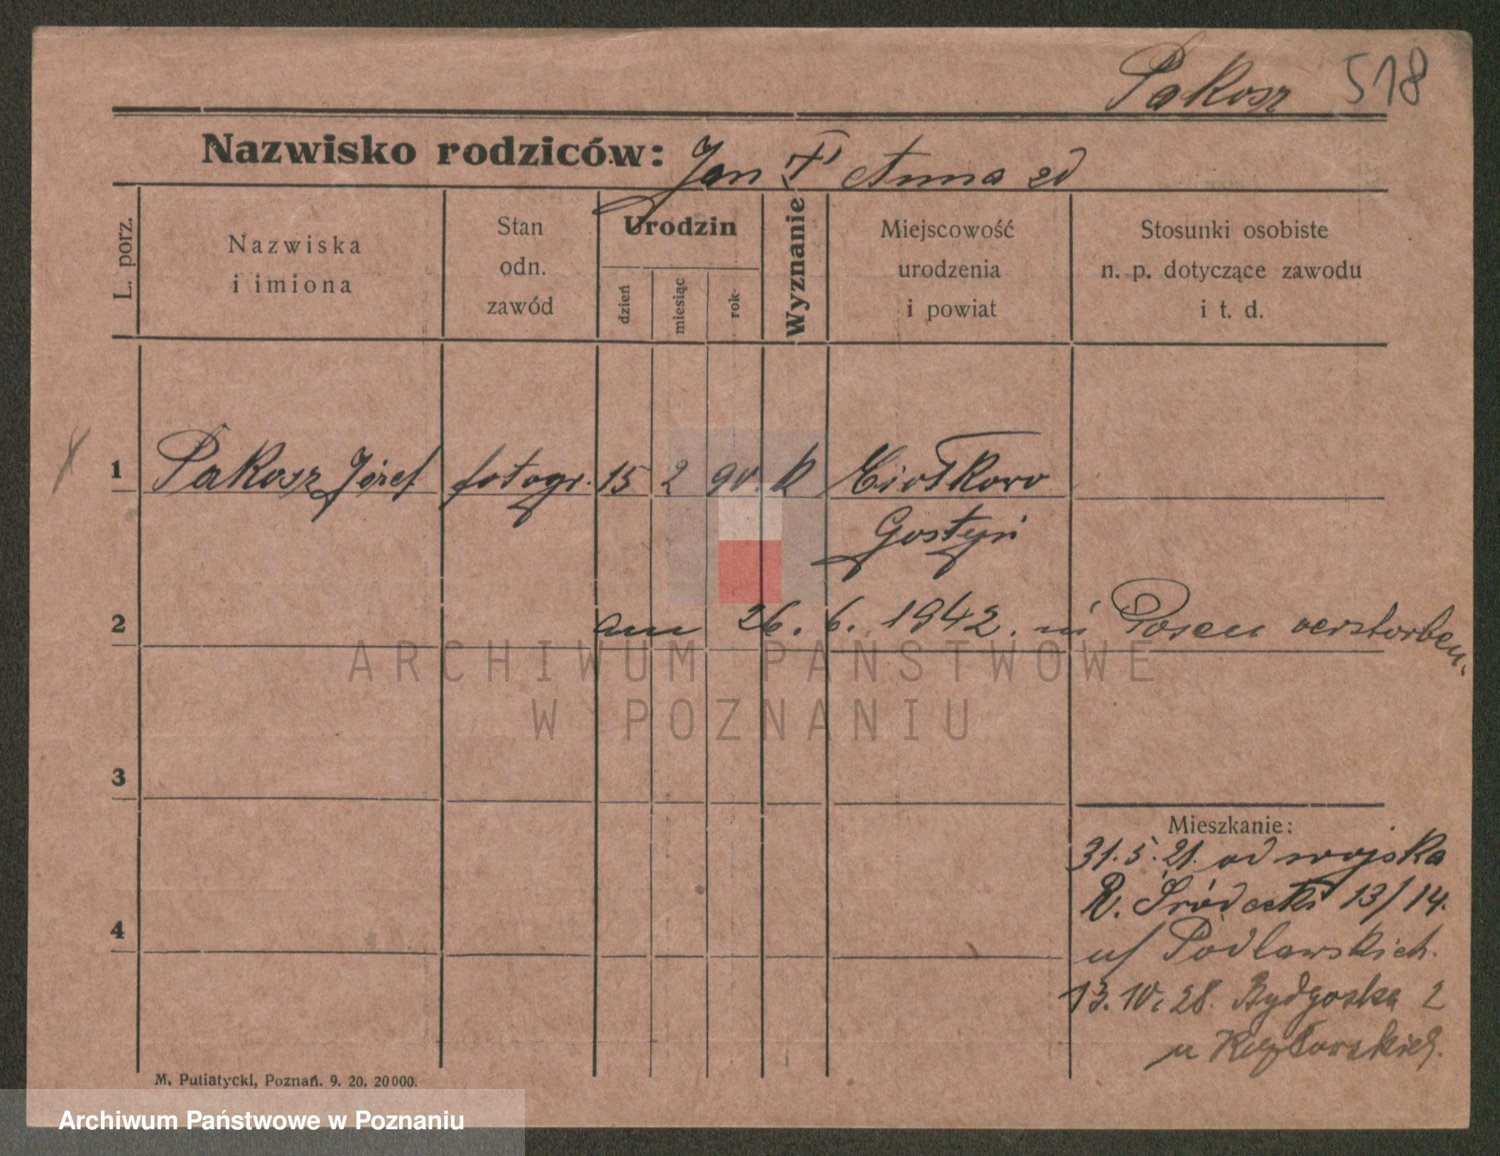 Pakosz 518
Nazwisko rodziców: Jan † Anna zd
L. porz.
Nazwiska i imiona
Stan odn. zawód
Urodzin
dzień
miesiąc
rok
Wyznanie
Miejscowość urodzenia i powiat
Stosunki osobiste n. p. dotyczące zawodu i t. d.
1 Pakosz Józef fotogr. 15 2 90. k Ciołkowo
Gostyń
2 am 26. 6. 1942. in Posen verstorben.
ARCHIWUM PAŃSTWOWE
W POZNANIU
3
Mieszkanie:
31.5.21. od wojska
R. Śródecki 13/14.
4 u/ Podlawskich.
13.10.28. Bydgoska 2
u
M. Putiatycki, Poznań. 9. 20. 20000.
Archiwum Państwowe w Poznaniu